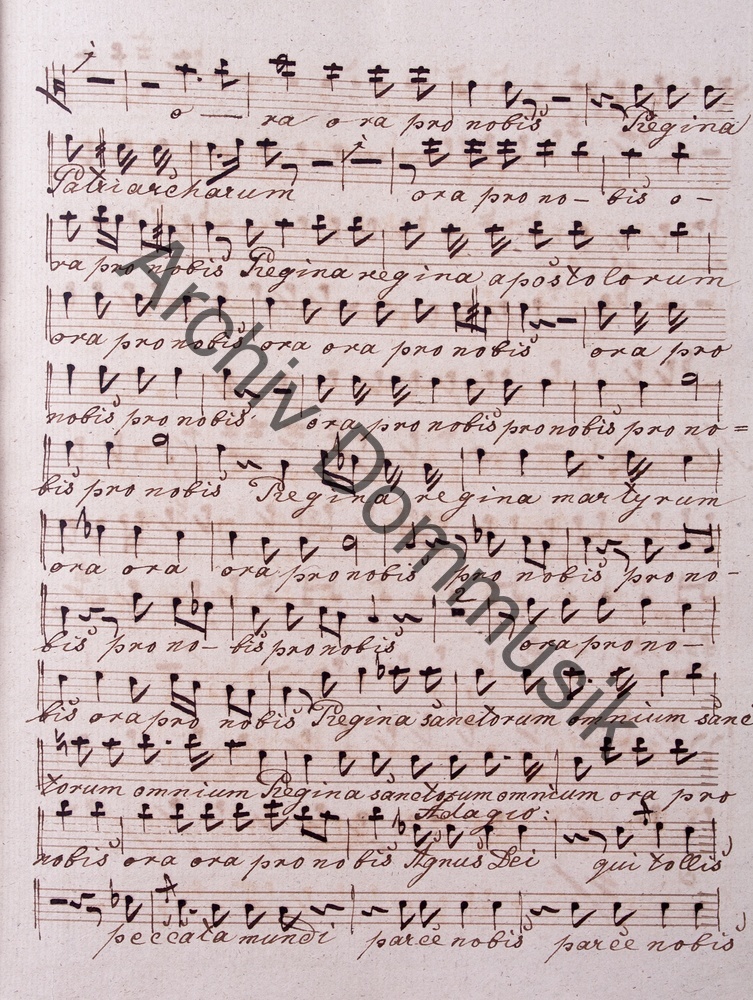 o — ra ora pro nobis Regina
Patriarcharum ora pro no- bis o-
ra pro nobis Regina regina apostolorum
ora pro nobis ora ora pro nobis ora pro
nobis pro nobis ora pro nobis pro nobis pro no=
bis pro nobis Regina regina martyrum
ora ora ora pro nobis pro nobis pro no-
bis pro no- bis pro nobis ora pro no-
bis ora pro nobis Regina sanctorum omnium sanc
torum omnium Regina sanctorum omnium ora pro
Adagio:
nobis ora ora pro nobis Agnus Dei qui tollis
peccata mundi parce nobis parce nobis
Archiv Dommusik